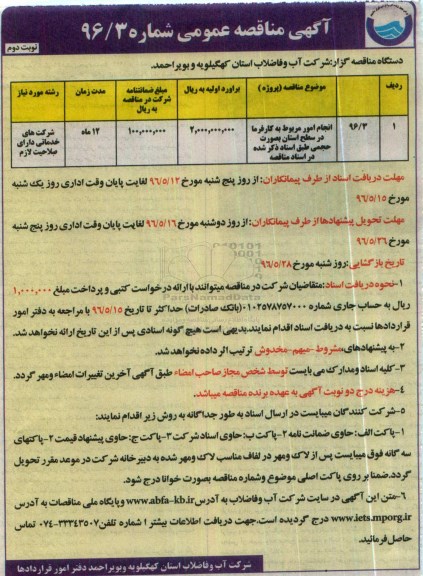 آگهی مناقصه عمومی شماره ۹۶/۳
نوبت دوم
دستگاه مناقصه گزار: شرکت آب و فاضلاب استان کهگیلویه و بویراحمد.
ردیف
موضوع مناقصه (پروژه)
براورد اولیه به ریال
مبلغ ضمانتنامه شرکت در مناقصه به ریال
مدت زمان
رشته مورد نیاز
۱
۹۶/۳
انجام امور مربوط به کارفرما در سطح استان بصورت حجمی طبق اسناد ذکر شده در اسناد مناقصه
۲,۰۰۰,۰۰۰,۰۰۰
۱۰۰,۰۰۰,۰۰۰
۱۲ ماه
شرکت های خدماتی دارای صلاحیت لازم
مهلت دریافت اسناد از طرف پیمانکاران: از روز پنج شنبه مورخ ۹۶/۵/۱۲ لغایت پایان وقت اداری روز یک شنبه
مورخ ۹۶/۵/۱۵
مهلت تحویل پیشنهادها از طرف پیمانکاران: از روز دوشنبه مورخ ۹۶/۵/۱۶ لغایت پایان وقت اداری روز پنج شنبه
مورخ ۹۶/۵/۲۶
تاریخ بازگشایی: روز شنبه مورخ ۹۶/۵/۲۸
۱-نحوه دریافت اسناد: متقاضیان شرکت در مناقصه میتوانند با ارائه درخواست کتبی و پرداخت مبلغ ۱,۰۰۰,۰۰۰
ریال به حساب جاری شماره ۰۱۰۲۵۷۸۷۵۷۰۰۰ (بانک صادرات) حداکثر تا تاریخ ۹۶/۵/۱۵ با مراجعه به دفتر امور
قراردادها نسبت به دریافت اسناد اقدام نمایند. بدیهی است هیچ گونه اسنادی پس از این تاریخ ارائه نخواهد شد.
۲-به پیشنهادهای، مشروط -مبهم-مخدوش ترتیب اثر داده نخواهد شد.
۳-کلیه اسناد و مدارک می بایست توسط شخص مجاز صاحب امضاء طبق آگهی آخرین تغییرات امضاء و مهر گردد.
۴-هزینه درج دو نوبت آگهی به عهده برنده مناقصه میباشد.
۵-شرکت کنندگان میبایست در ارسال اسناد به طور جداگانه به روش زیر اقدام نمایند:
۱-پاکت الف: حاوی ضمانت نامه ۲-پاکت ب: حاوی اسناد شرکت ۳-پاکت ج: حاوی پیشنهاد قیمت ۲-پاکتهای
سه گانه فوق میبایست پس از لاک و مهر در لفاف مناسب لاک و مهر شده به دبیرخانه شرکت در موعد مقرر تحویل
گردد. ضمنا بر روی پاکت اصلی موضوع و شماره مناقصه بصورت خوانا درج شود.
۶-متن این آگهی در سایت شرکت آب و فاضلاب به آدرس www.abfa-kb.ir و پایگاه ملی مناقصات به آدرس
www.iets.mporg.ir درج گردیده است. جهت دریافت اطلاعات بیشتر ا شماره تلفن ۰۷۴-۳۳۳۴۳۵۰۷ تماس
حاصل فرمائید.
شرکت آب و فاضلاب استان کهگیلویه وبویراحمد دفتر امور قراردادها
ParsNamadData